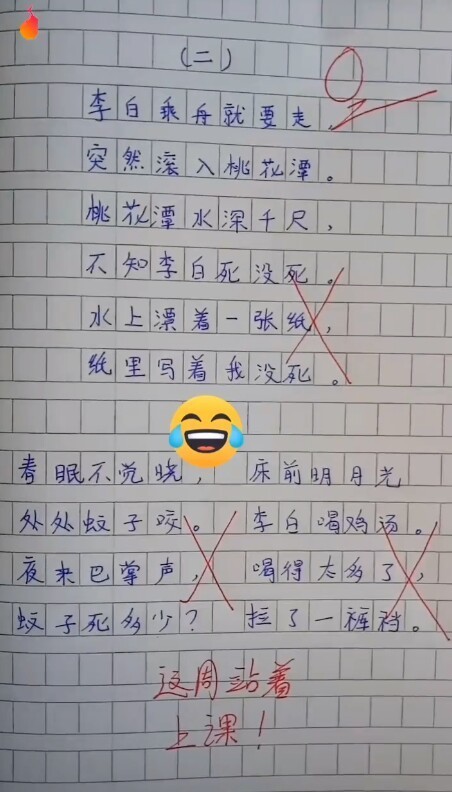 (二)
李白乘舟就要走
突然滚入桃花潭。
桃花潭水深千尺,
不知李白死没死。
水上漂着一张纸,
纸里写着我没死。
春眠不觉晓,
处处蚊子咬。
夜来巴掌声,
蚊子死多少?
床前明月光
李白喝鸡汤。
喝得太多了,
拉了一裤裆。
这周站着
上课!